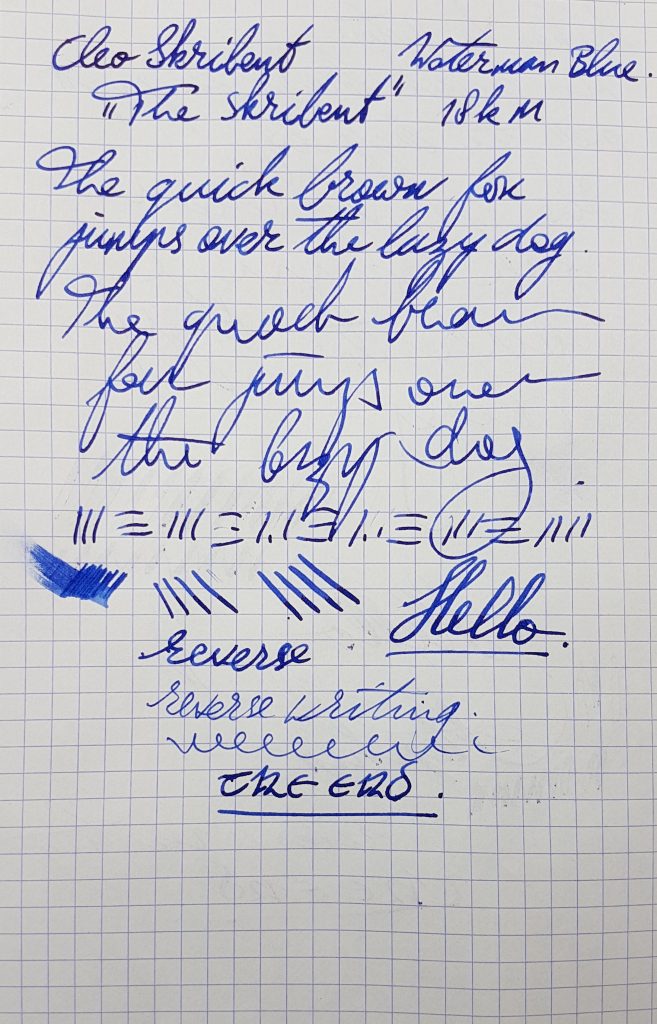 Cleo Skribent Waterman Blue.
"The Skribent" 18k M
The quick brown fox
jumps over the lazy dog.
The quick brown
fox jumps over
the lazy dog
Hello.
reverse
reverse writing.
THE END.